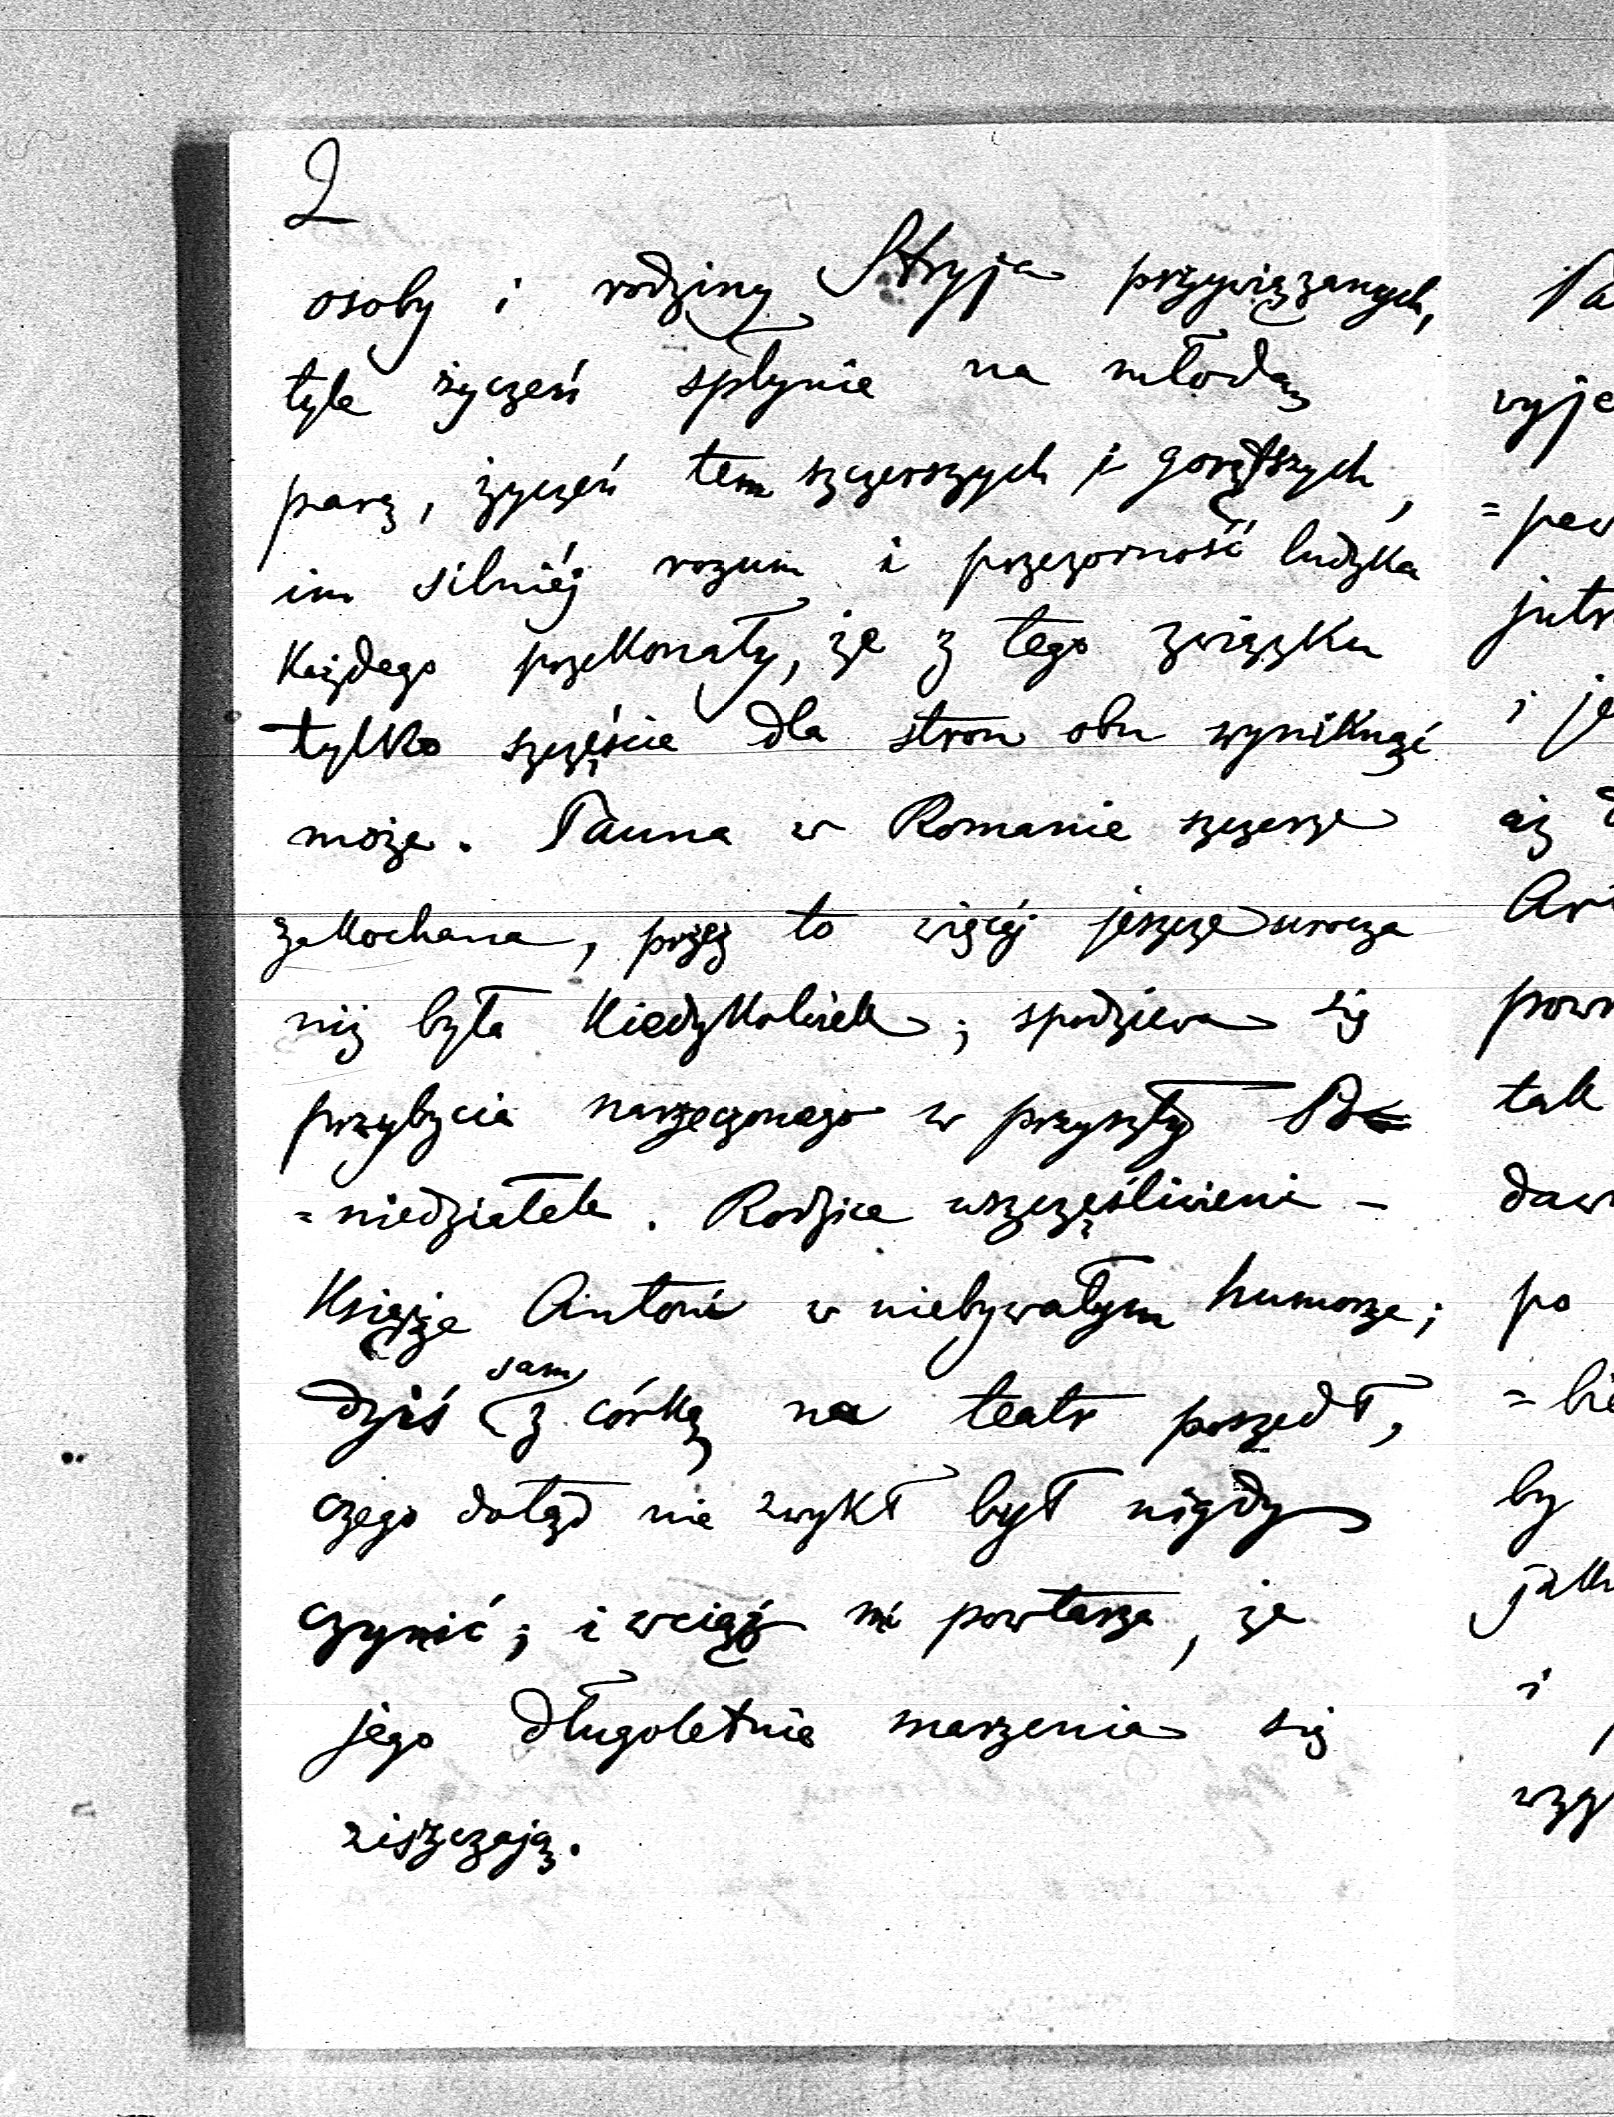 2
osoby i rodziny Stryja przywiązanych,
tyle życzeń spłynie na młodą
parę, życzeń tem szczerszych i gorętszych,
im silniéj rozum i przezorność ludzka
każdego przekonały, że z tego związku
tylko szczęście dla stron obu wyniknąć
może. Panna w Romanie szczerze
zakochana, przez to więcéj jeszcze urocza
niż była kiedykolwiek; spodziewa się
przybycia narzeczonego w przyszły Po
=niedziałek. Rodzice uszczęśliwieni –
Książe Antoni w niebywałym humorze;
dziś sam z córką na teatr poszedł,
czego dotąd nie zwykł był nigdy
czynić; i wciąż mi powtarza, że
jego długoletnie marzenia się
ziszczają.
Pa
wyje
=pew
jutr
i je
aż
Ar
powr
tak
daw
po
=bie
by
jak
i
wzg